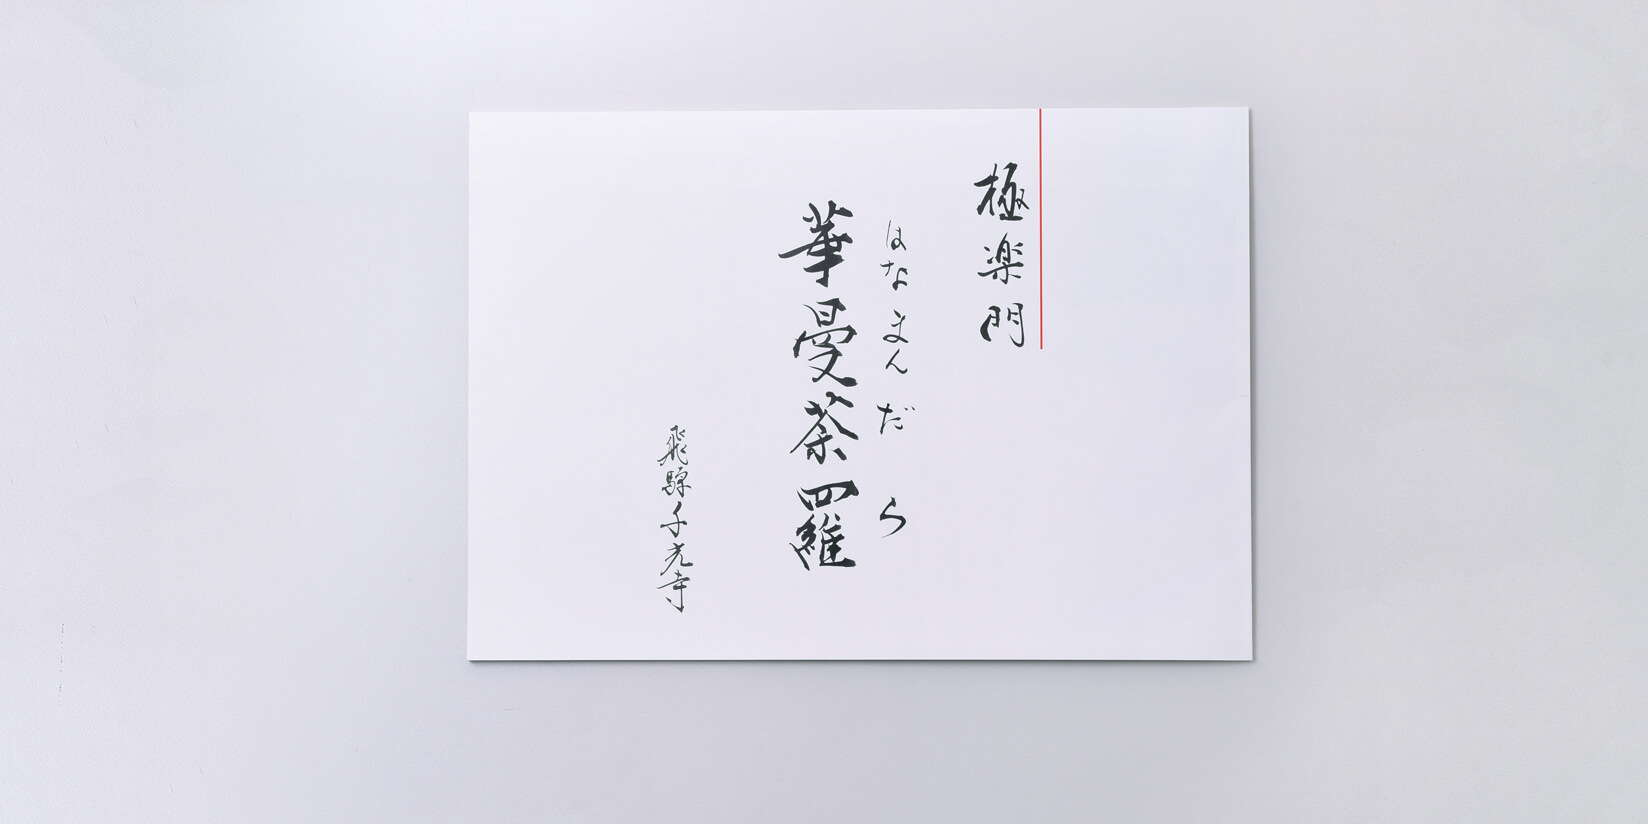 極楽門
はなまんだら
華曼荼羅
飛騨千光寺